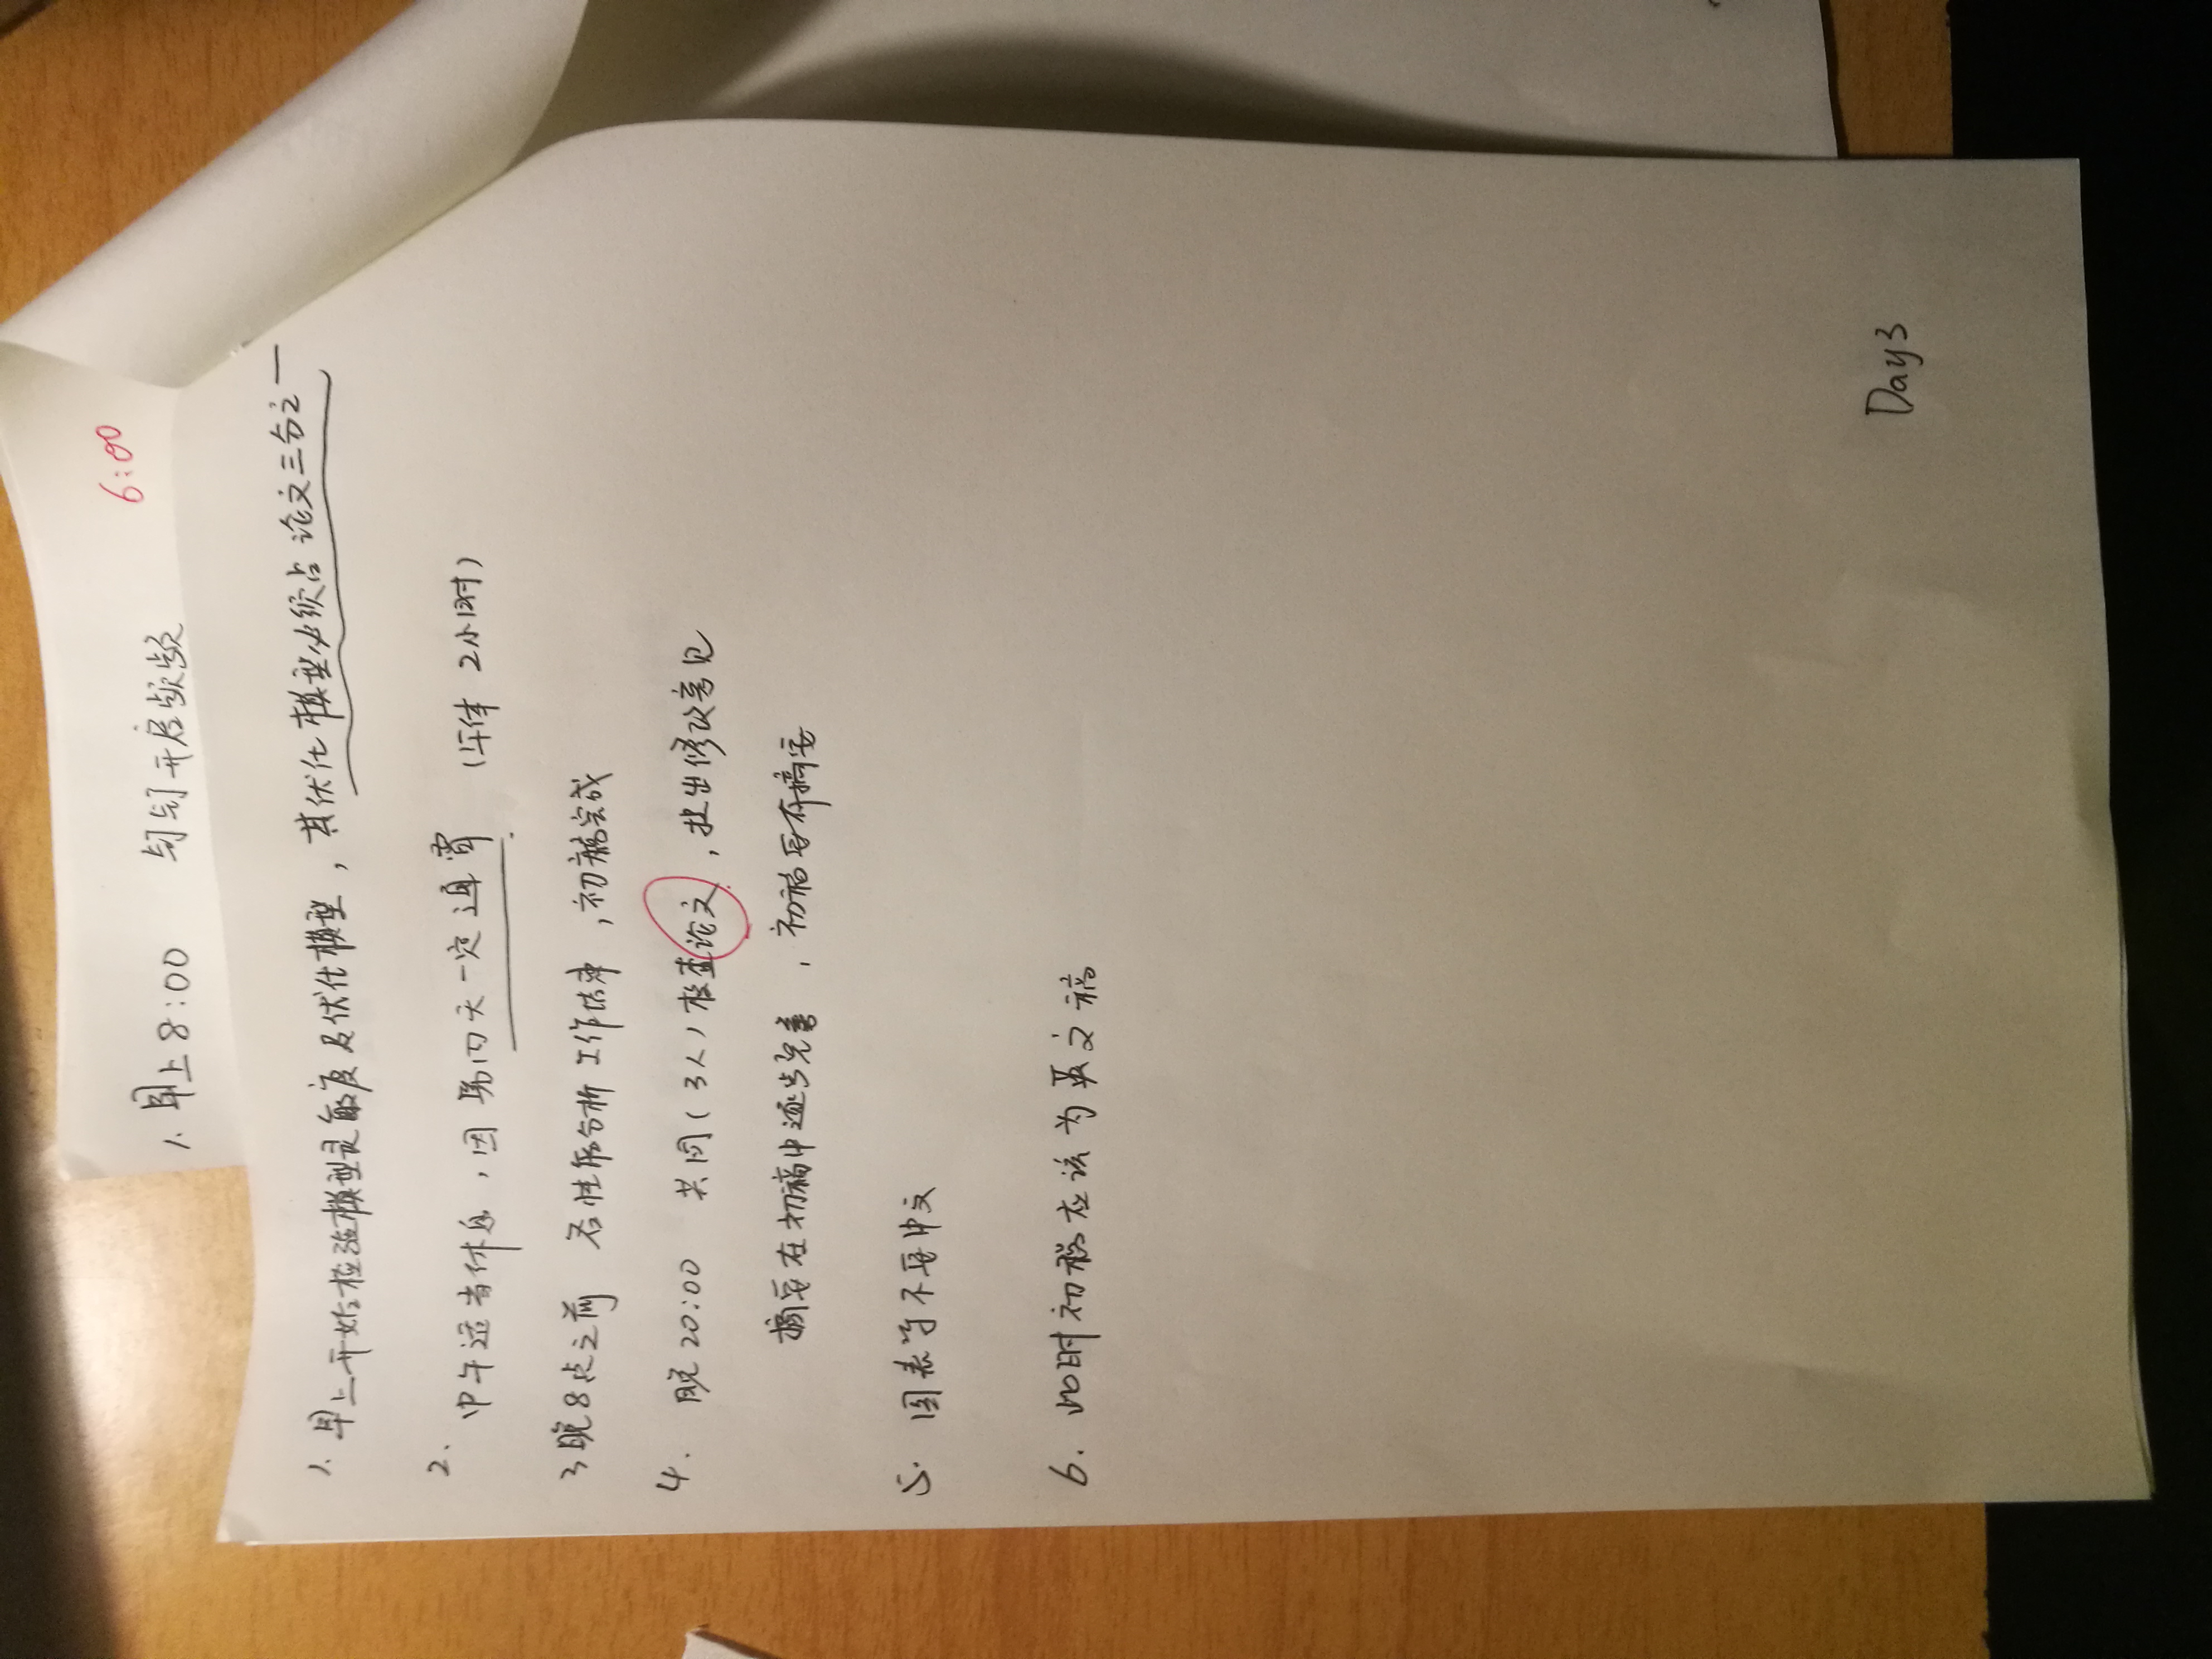 6:00
1. 早上8:00 钉钉开启频频
1. 早上开始检验模型灵敏度及优化模型，其优化模型必须占论文三分之一
2. 中午适当休息，因第四天一定通宵 (午休 2小时)
3 晚8点之前 各性能分析工作结束，初稿完成
4. 晚20:00 共同(3人)检查论文，提出修改意见
摘要在初稿中逐步完善，初稿要有摘要
5. 图表等不要中文
6. 此时初稿应该为英文稿
Day3